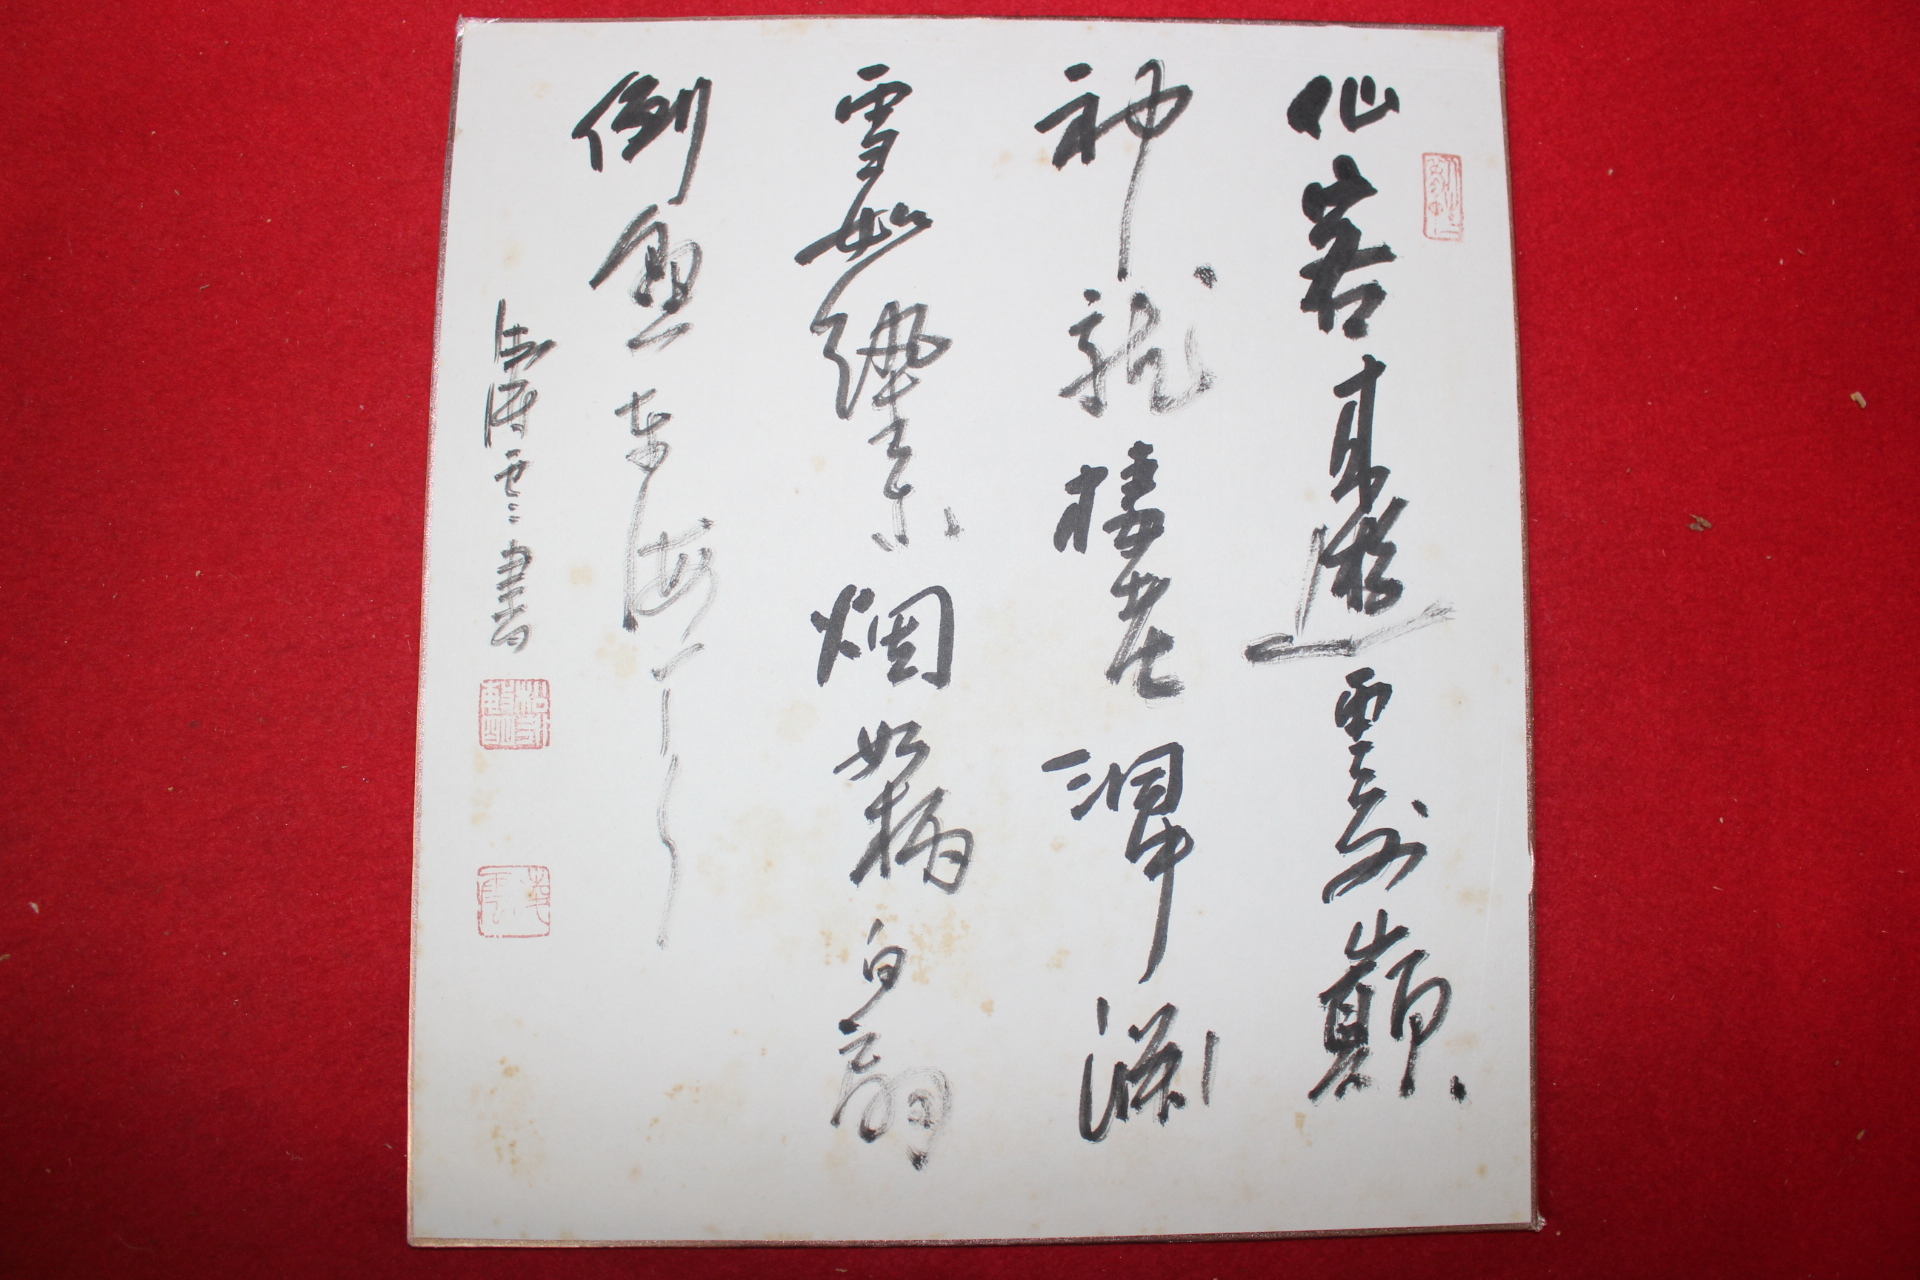 仙客来遊雲外巓
神龍棲老洞中淵
雪如紈素烟如柄白扇
倒懸東海天
書